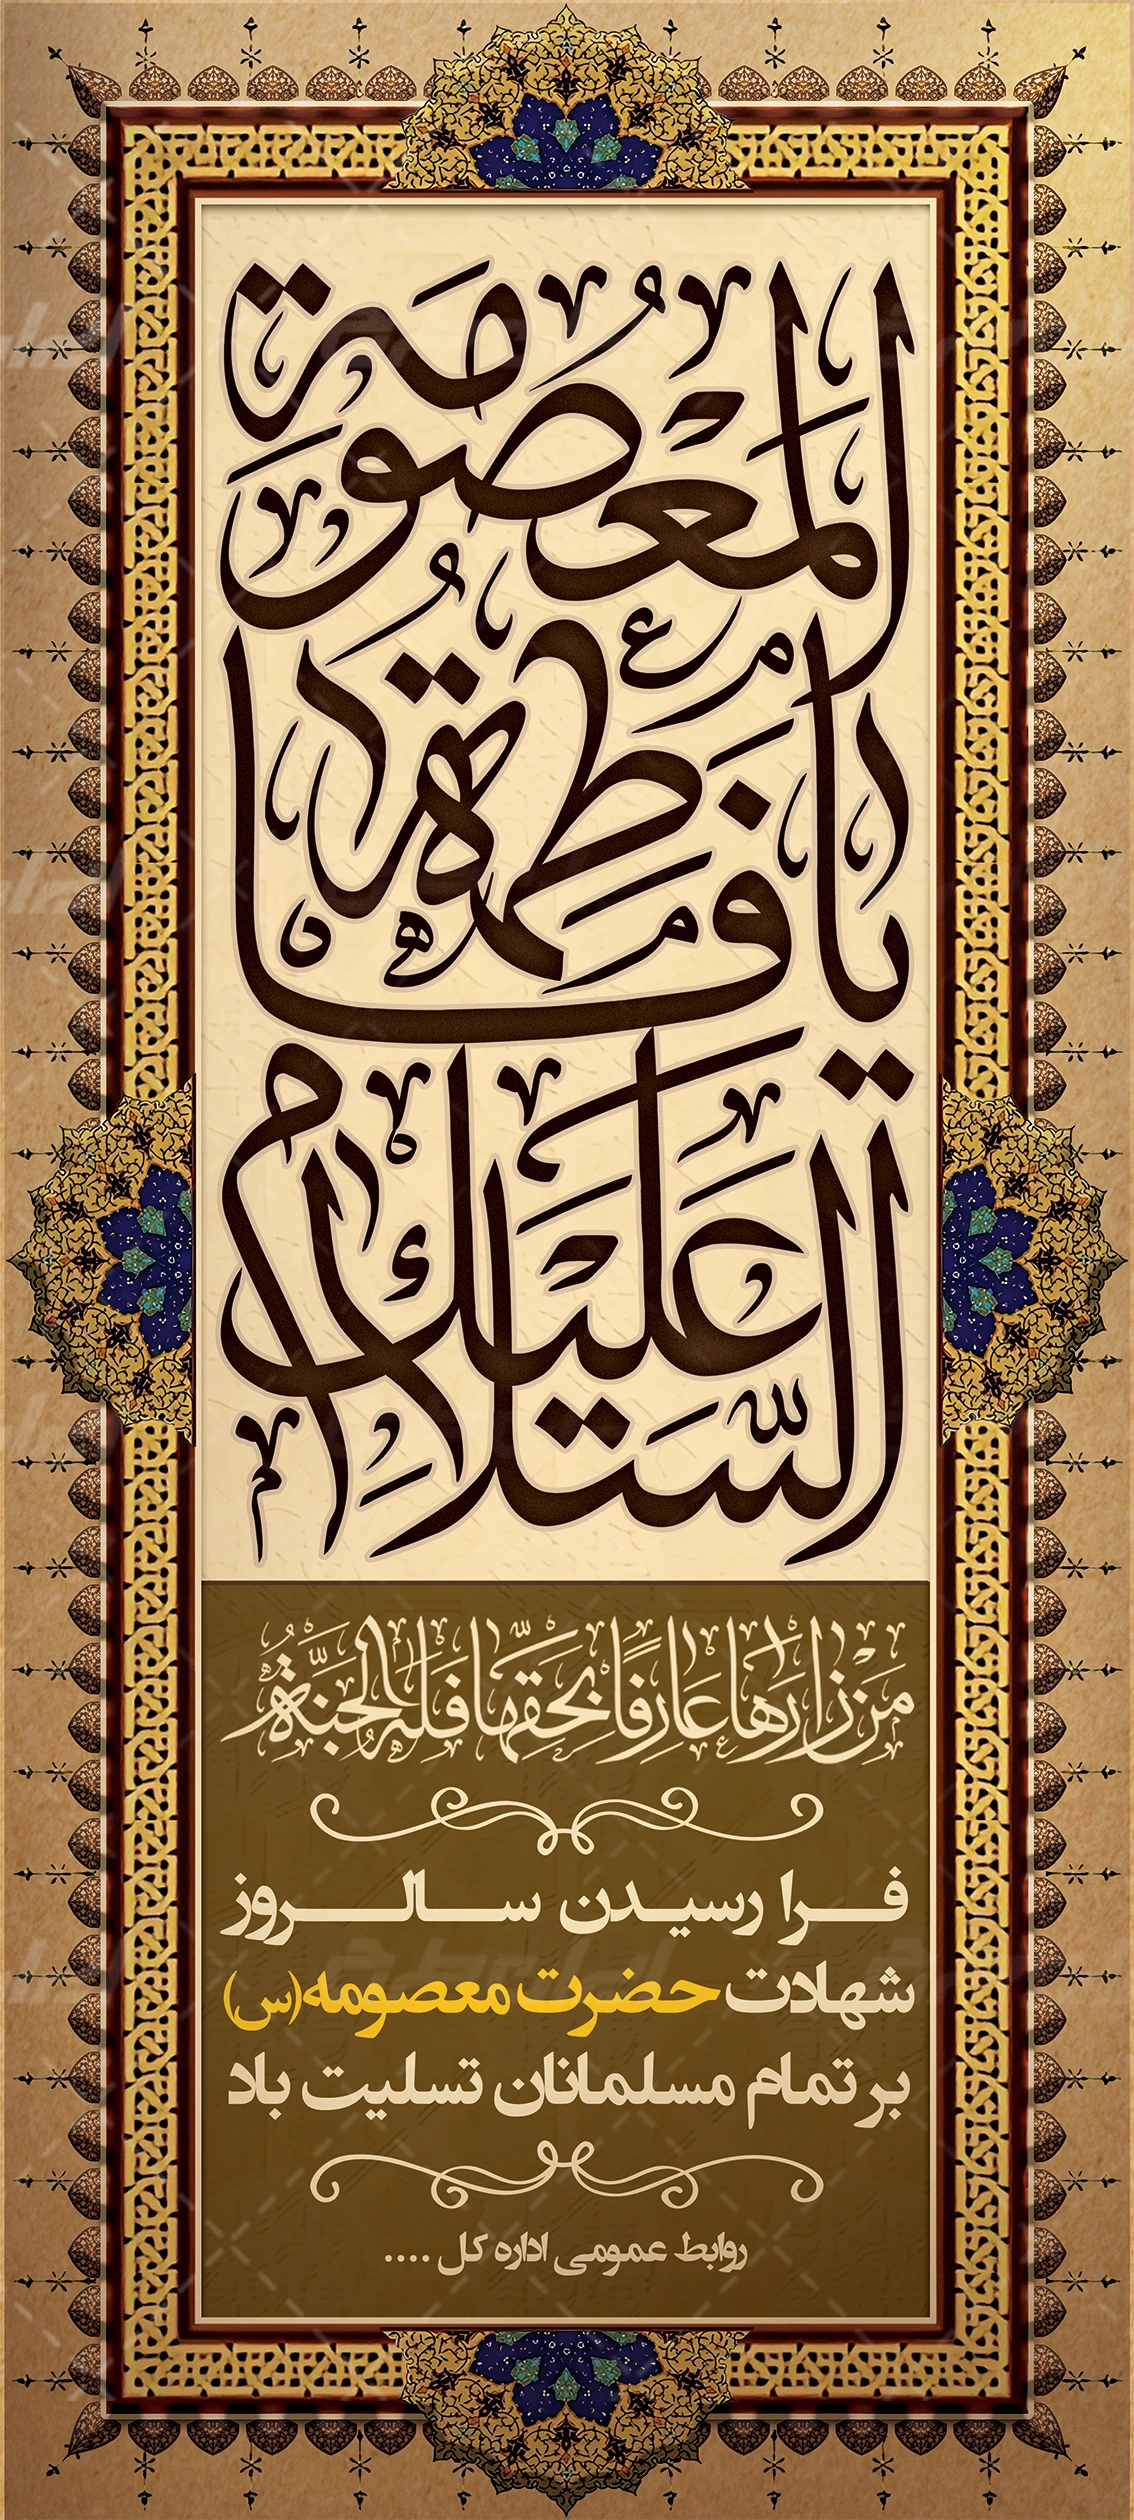 السَّلامُ عَلَیْكِ یا فاطِمَةُ الْمَعْصُومَة
مَنْ زارَها عارِفًا بِحَقِّها فَلَهُ الْجَنَّةُ
فرا رسیدن سالروز
شهادت حضرت معصومه (س)
بر تمام مسلمانان تسلیت باد
روابط عمومی اداره کل ....